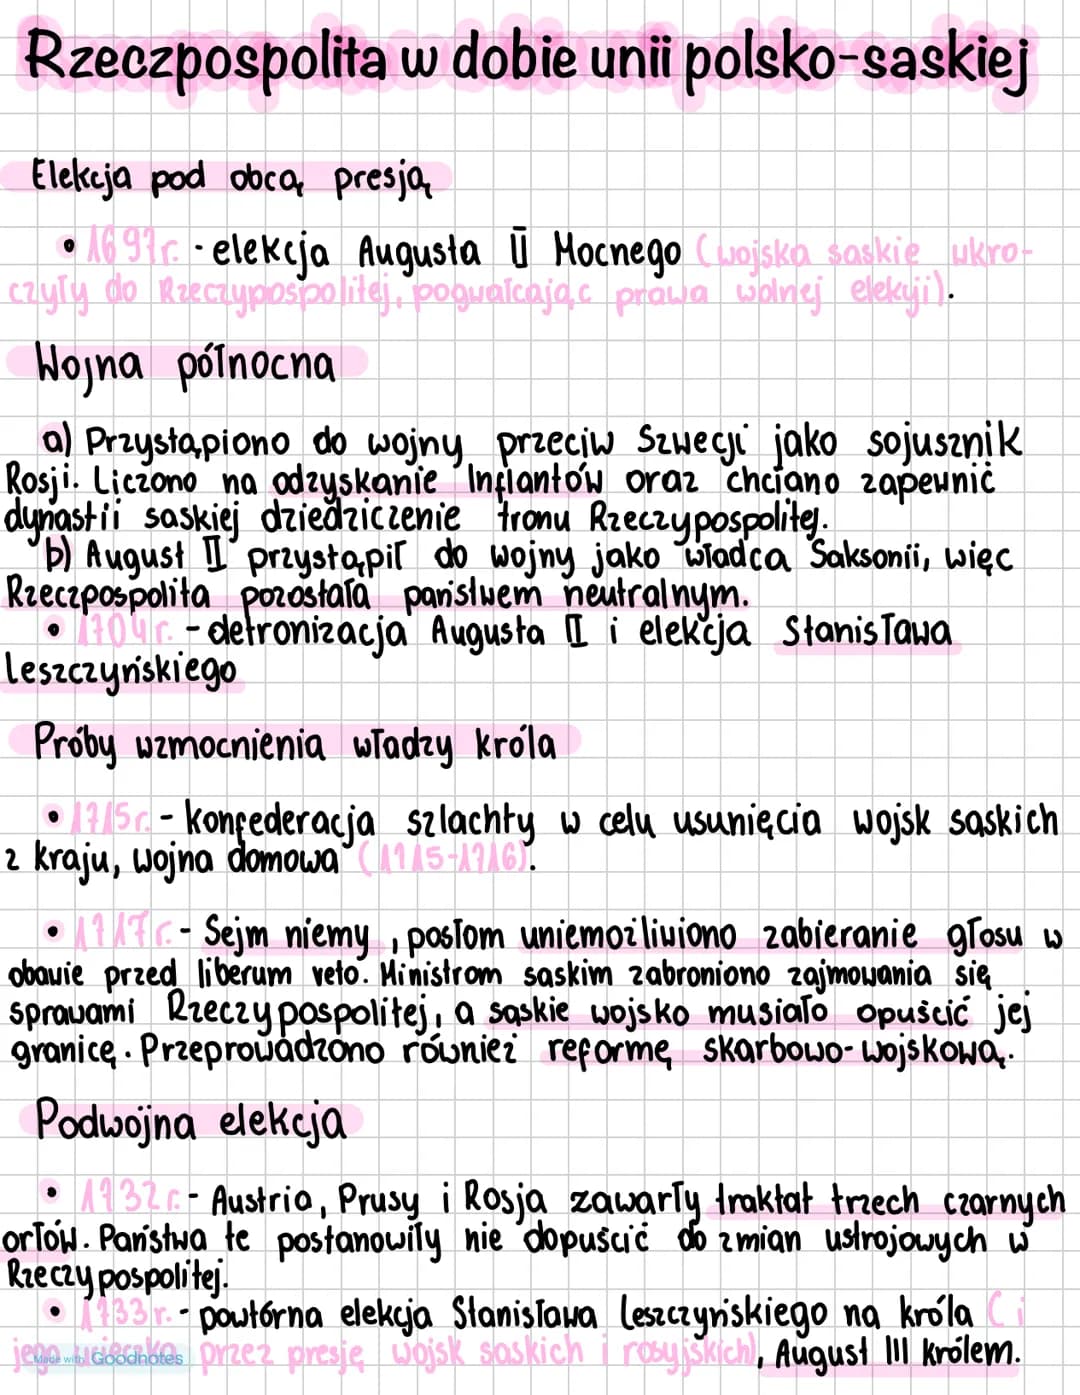 Rzeczpospolita w dobie unii polsko-saskiej
Elekcja pod obcą presją
• 1697r. - elekcja Augusta II Mocnego (wojska saskie wkro-
czyły do Rzeczypospolitej, pogwałcając prawa wolnej elekyji).
Wojna północna
a) Przystąpiono do wojny przeciw Szwecji jako sojusznik
Rosji. Liczono na odzyskanie Inflantów oraz chciano zapewnić
dynastii saskiej dziedziczenie tronu Rzeczypospolitej.
b) August II przystąpił do wojny jako władca Saksonii, więc
Rzeczpospolita pozostała państwem neutralnym.
• 1704r. - detronizacja Augusta II i elekcja Stanisława
Leszczyńskiego
Próby wzmocnienia władzy króla
• 1715r. - konfederacja szlachty w celu usunięcia wojsk saskich
z kraju, wojna domowa (1715-1716).
• 1717r. - Sejm niemy, posłom uniemożliwiono zabieranie głosu w
obawie przed liberum veto. Ministrom saskim zabroniono zajmowania się
sprawami Rzeczypospolitej, a saskie wojsko musiało opuścić jej
granicę. Przeprowadzono również reformę skarbowo-wojskową.
Podwójna elekcja
• 1732r. - Austria, Prusy i Rosja zawarły traktat trzech czarnych
orłów. Państwa te postanowiły nie dopuścić do zmian ustrojowych w
Rzeczypospolitej.
• 1733r. - powtórna elekcja Stanisława Leszczyńskiego na króla (i
jego ucieczka przez presję wojsk saskich i rosyjskich), August III królem.
Made with Goodnotes